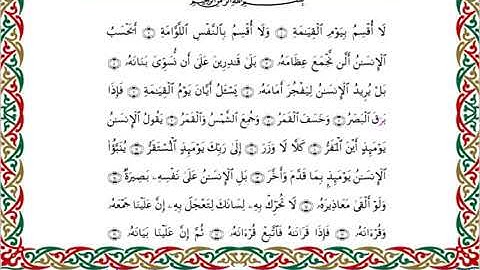 بِسْمِ ٱللَّهِ ٱلرَّحْمَٰنِ ٱلرَّحِيمِ
لَا أُقْسِمُ بِيَوْمِ ٱلْقِيَٰمَةِ ۝ وَلَا أُقْسِمُ بِٱلنَّفْسِ ٱللَّوَّامَةِ ۝ أَيَحْسَبُ
ٱلْإِنسَٰنُ أَلَّن نَّجْمَعَ عِظَامَهُۥ ۝ بَلَىٰ قَٰدِرِينَ عَلَىٰ أَن نُّسَوِّىَ بَنَانَهُۥ ۝
بَلْ يُرِيدُ ٱلْإِنسَٰنُ لِيَفْجُرَ أَمَامَهُۥ ۝ يَسْـَٔلُ أَيَّانَ يَوْمُ ٱلْقِيَٰمَةِ ۝ فَإِذَا
بَرِقَ ٱلْبَصَرُ ۝ وَخَسَفَ ٱلْقَمَرُ ۝ وَجُمِعَ ٱلشَّمْسُ وَٱلْقَمَرُ ۝ يَقُولُ ٱلْإِنسَٰنُ
يَوْمَئِذٍ أَيْنَ ٱلْمَفَرُّ ۝ كَلَّا لَا وَزَرَ ۝ إِلَىٰ رَبِّكَ يَوْمَئِذٍ ٱلْمُسْتَقَرُّ ۝ يُنَبَّؤُا۟
ٱلْإِنسَٰنُ يَوْمَئِذٍۭ بِمَا قَدَّمَ وَأَخَّرَ ۝ بَلِ ٱلْإِنسَٰنُ عَلَىٰ نَفْسِهِۦ بَصِيرَةٌ ۝
وَلَوْ أَلْقَىٰ مَعَاذِيرَهُۥ ۝ لَا تُحَرِّكْ بِهِۦ لِسَانَكَ لِتَعْجَلَ بِهِۦٓ ۝ إِنَّ عَلَيْنَا جَمْعَهُۥ
وَقُرْءَانَهُۥ ۝ فَإِذَا قَرَأْنَٰهُ فَٱتَّبِعْ قُرْءَانَهُۥ ۝ ثُمَّ إِنَّ عَلَيْنَا بَيَانَهُۥ ۝